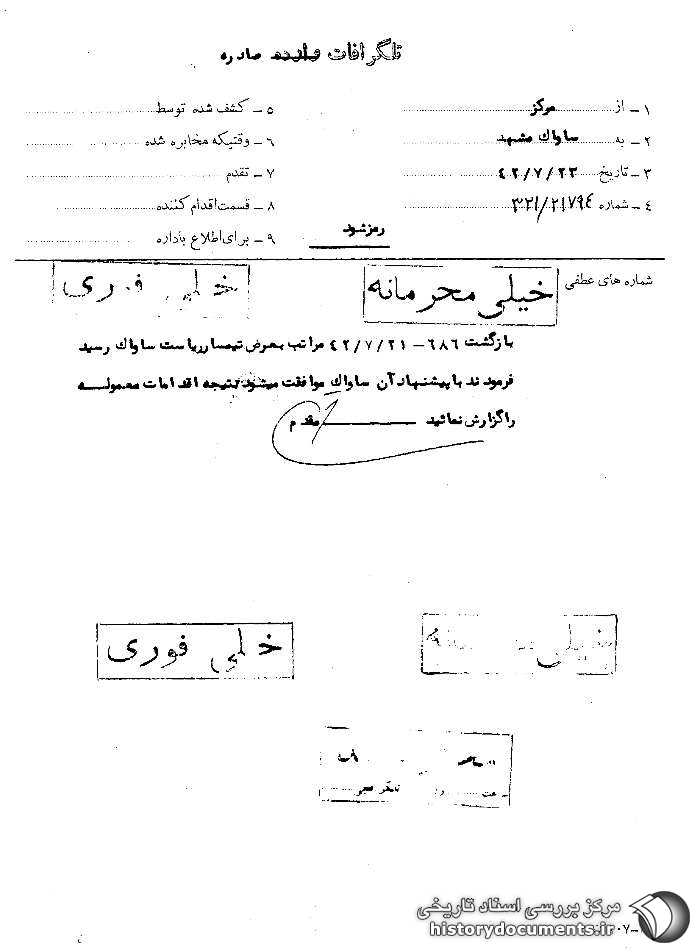 تلگرافات وارده صادره
۱ـ از مرکز
۲ـ به ساواک مشهد
۳ـ تاریخ ۴۲/۷/۲۳
۴ـ شماره ۳۲۱/۲۱۷۹۴
۵ـ کشف شده توسط
۶ـ وقتیکه مخابره شده
۷ـ تقدم
۸ـ قسمت اقدام کننده
۹ـ برای اطلاع باداره
رمز شود
شماره های عطفی
خیلی محرمانه
خیلی فوری
بازگشت ۶۸۶ـ ۴۲/۷/۲۱ مراتب بعرض تیمسار ریاست ساواک رسید
فرمودند با پیشنهاد آن ساواک موافقت میشود نتیجه اقدامات معموله
را گزارش نمائید مقدم
خیلی
خیلی فوری
تلگرافچی
مرکز بررسی اسناد تاریخی
historydocuments.ir